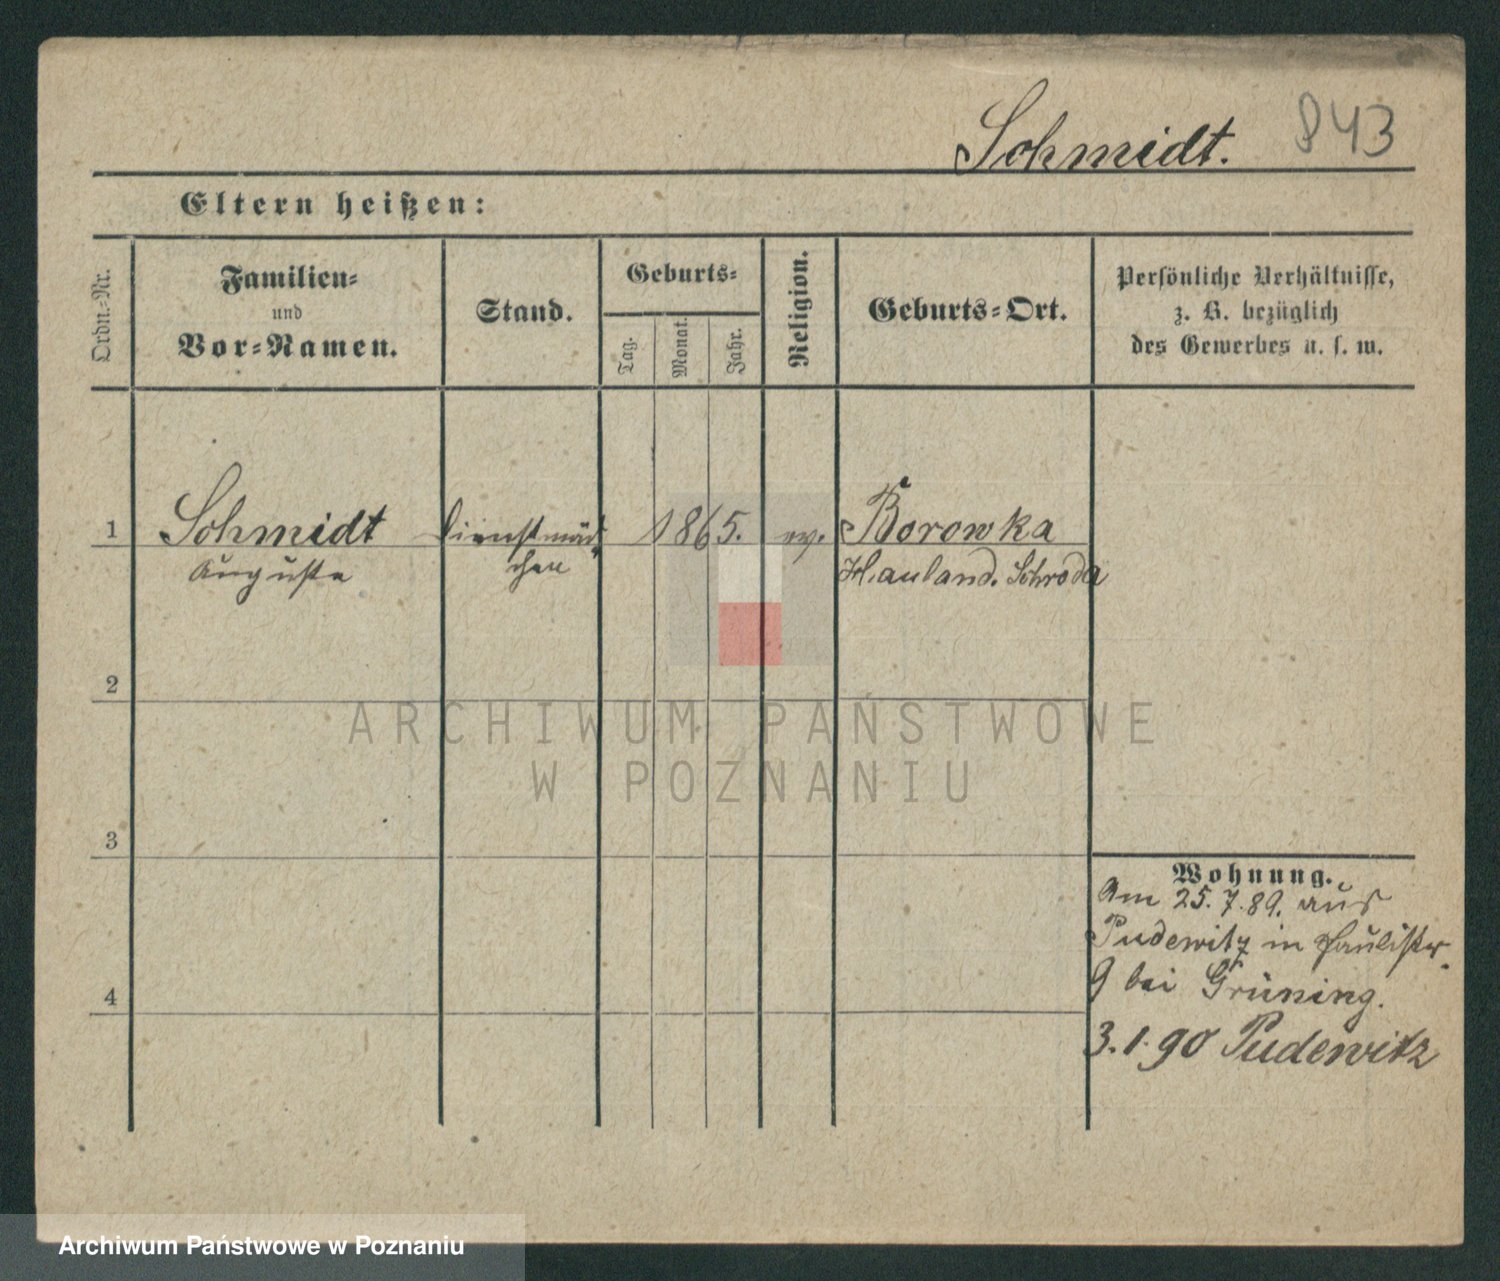 Schmidt. 843
Eltern heißen:
Ordn.-Nr.
Familien-
und
Vor-Namen.
Stand.
Geburts-
Tag.
Monat.
Jahr.
Religion.
Geburts-Ort.
Persönliche Verhältnisse,
z. B. bezüglich
des Gewerbes u. s. w.
1 Schmidt Dienstmäd- 1865. ev. Borowka
Auguste chen Hauland. Schroda
2
ARCHIWUM PAŃSTWOWE
W POZNANIU
3
Wohnung.
Am 25.7.89. aus
Pudewitz in Paulistr.
9 bei Grüning.
4
3.1.90 Pudewitz
Archiwum Państwowe w Poznaniu